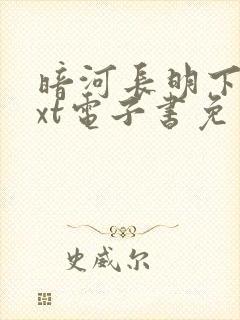 暗河長明下
xt電子書免
史威尔